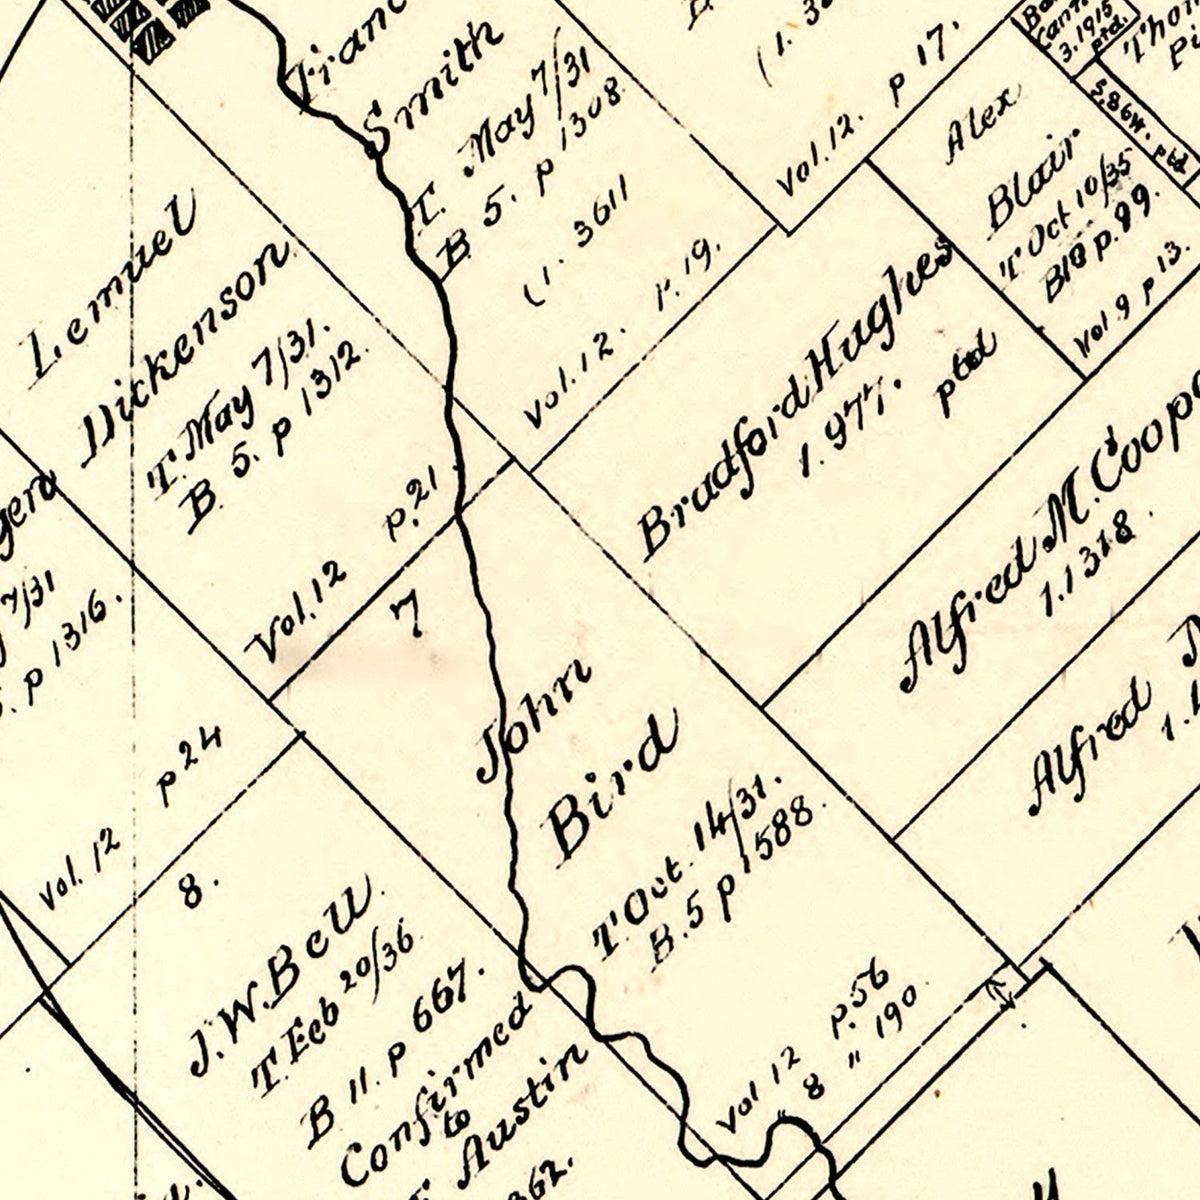 Smith
T. May 7/31
B 5. p 1308
(1. 3611
Vol. 12. p. 19.
Vol. 12. p 17.
Alex
Blair
T Oct 10/35
B10 p. 99.
Vol 9 p 13.
3.1915
ptd.
5.86w. ptd
Lemuel
Dickenson
T. May 7/31.
B. 5. p 1312.
Vol. 12 p. 21.
Bradford Hughes
1. 977. ptd
Alfred M. Coope
1.1318.
Alfred
7/31
p 1316.
Vol. 12 p 24
7
John
Bird
T. Oct. 14/31.
B. 5 p 1588.
Vol 12 p. 56
" 8 " 190
8.
J. W. Bell
T. Feb 20/36
B 11. p 667.
Confirmed
to
F Austin
362.